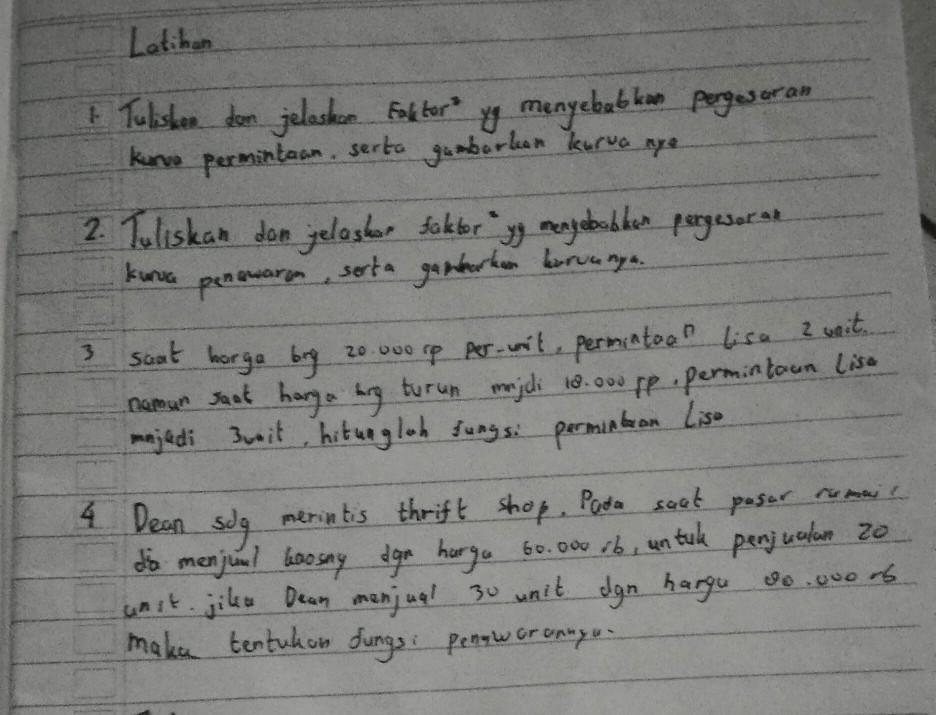 Latihan
1. Tuliskan dan jelaskan Faktor² yg menyebabkan pergesaran
kurva permintaan, serta gambarkan kurva nya
2. Tuliskan dan jelaskan faktor² yg menyebabkan pergesaran
kurva penawaran, serta gambarkan kurvanya.
3 saat harga brg 20.000 rp per-unit, permintaan Lisa 2 unit.
namun saat harga brg turun mnjdi 18.000 rp, permintaan Lisa
mnjadi 3 unit, hitunglah fungsi permintaan Lisa
4 Dean sdg merintis thrift shop. Pada saat pasar ramai,
dia menjual kaosny dgn harga 60.000 rb, untuk penjualan 20
unit. jika Dean menjual 30 unit dgn harga 80.000 rb
maka tentukan fungsi penawarannya.